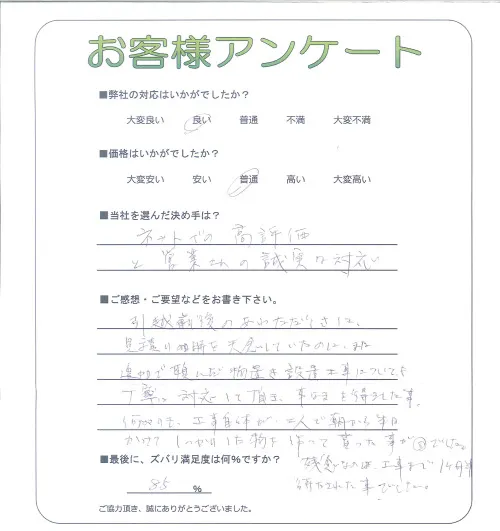 お客様アンケート
■弊社の対応はいかがでしたか？
大変良い 良い 普通 不満 大変不満
■価格はいかがでしたか？
大変安い 安い 普通 高い 大変高い
■当社を選んだ決め手は？
ネットでの高評価
と営業さんの誠実な対応
■ご感想・ご要望などをお書き下さい。
引越前後のあわただしさに、
見積り
追加で頼んだ物置き設置工事についても
丁寧に対応して頂き、事なきを得られた事、
何よりも、工事自体が、二人で朝から半日
かけて しっかりした物を作って貰った事が
■最後に、ズバリ満足度は何%ですか？
残念なのは、工事まで1ヶ月半
待たされた事でした。
85 %
ご協力頂き、誠にありがとうございました。